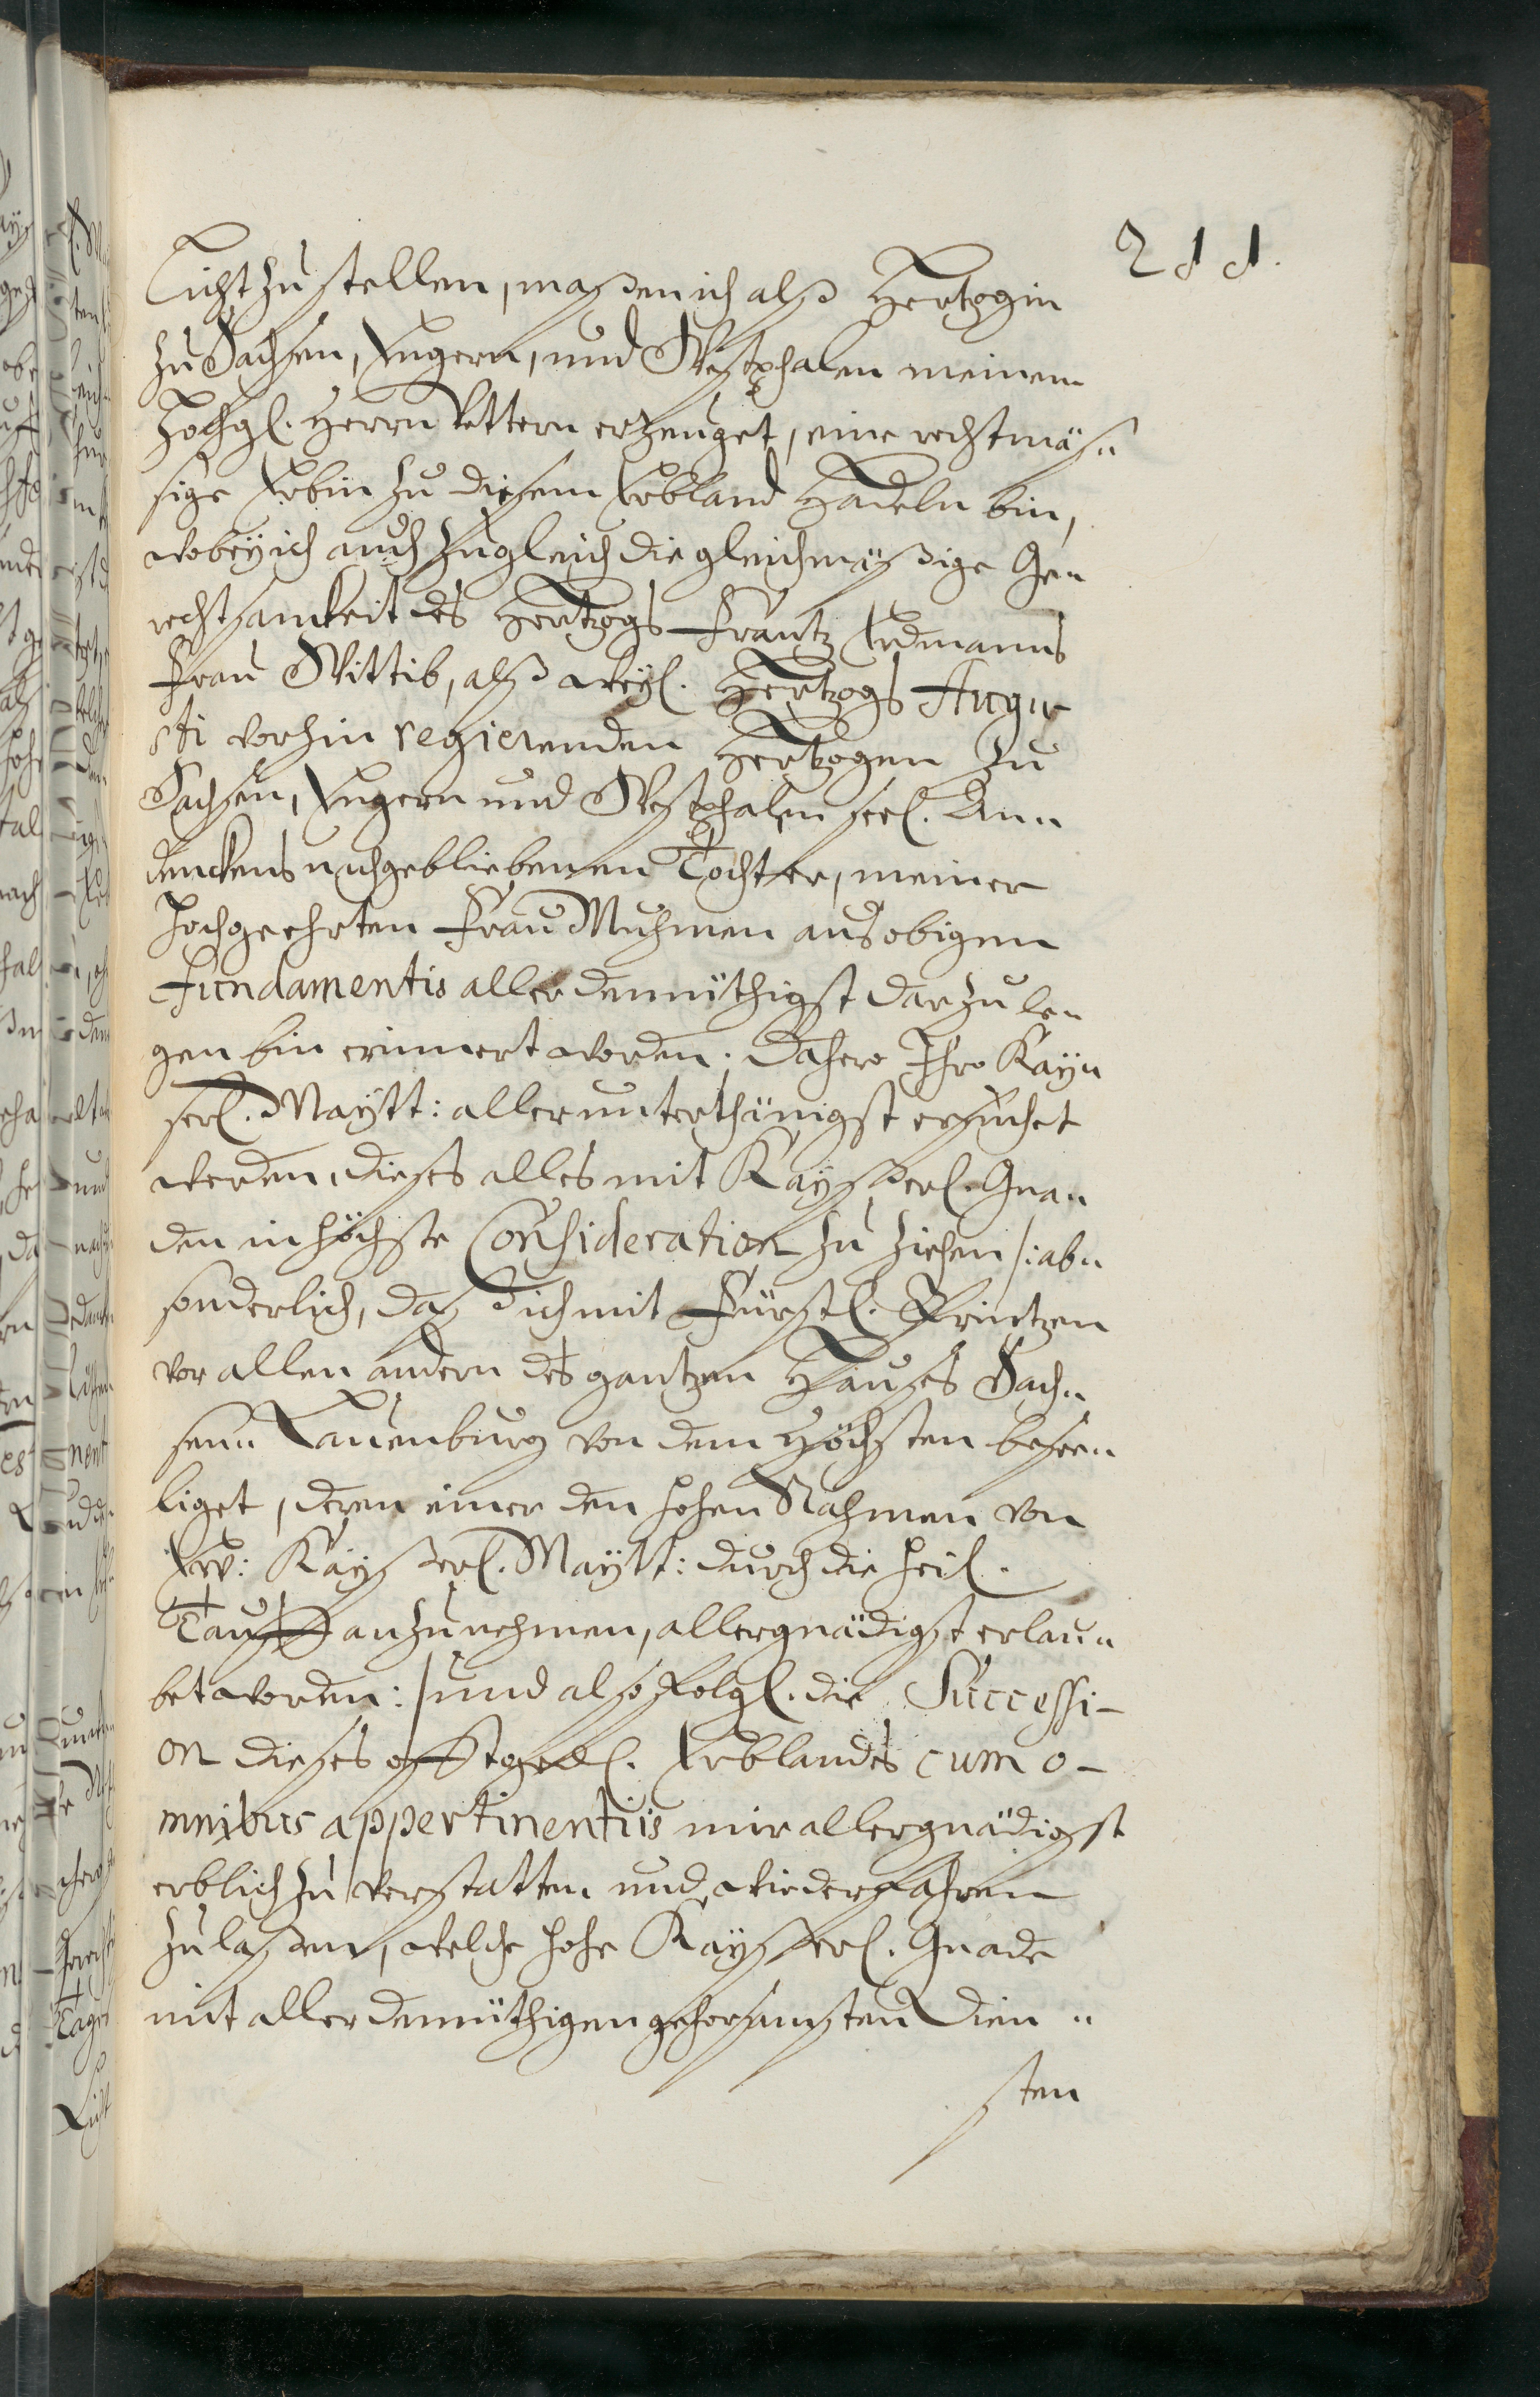 211.
Licht zu stellen, maßen ich alß Hertzogin
zu Sachsen, Engern, und Westphalen meinem
Hochgl. Herrn Vettern erzeuget, eine rechtmäs„
sige Erbin zu diesem Erbland Hadeln bin,
wobey ich auch zugleich die gleichmäßige Ge„
rechtsamkeit des Hertzogs Frantz Erdmanns
Frau Wittib, alß weyl. Hertzogs Augu-
sti vorhin regierenden Hertzogen zu
Sachsen, Engern und Westphalen seel. An„
denckens nachgebliebenen Tochter, meiner
hochgeehrten Frau Muhmen aus obigen
Fundamentis allerdemüthigst darzule„
gen bin erinnert worden; Dahero Ihro Kay„
serl. Maytt: allerunterthänigst ersuchet
werden, dieses alles mit Kayßerl. Gna„
den in höchste Consideration zu ziehen /: ab„
sonderlich, daß dich mit Fürstl. Printzen
vor allen andern des gantzen Hauses Sach„
sen„ Lauenburg von dem Höchsten besee„
liget, deren einer den hohen Nahmen von
Ew: Kayßerl. Maytt: durch die heil.
Tauffe anzunehmen, allergnädigst erlau„
bet worden :/ und also folgl. die Successi-
on dieses offtgedl. Erblandes cum o-
mnibus appertinentiis mir allergnädigst
erblich zu verstatten und wiederfahren
zu laßen, welche hohe Kayßerl. Gnade
mit allerdemüthigen gehorsamsten Dien„
sten